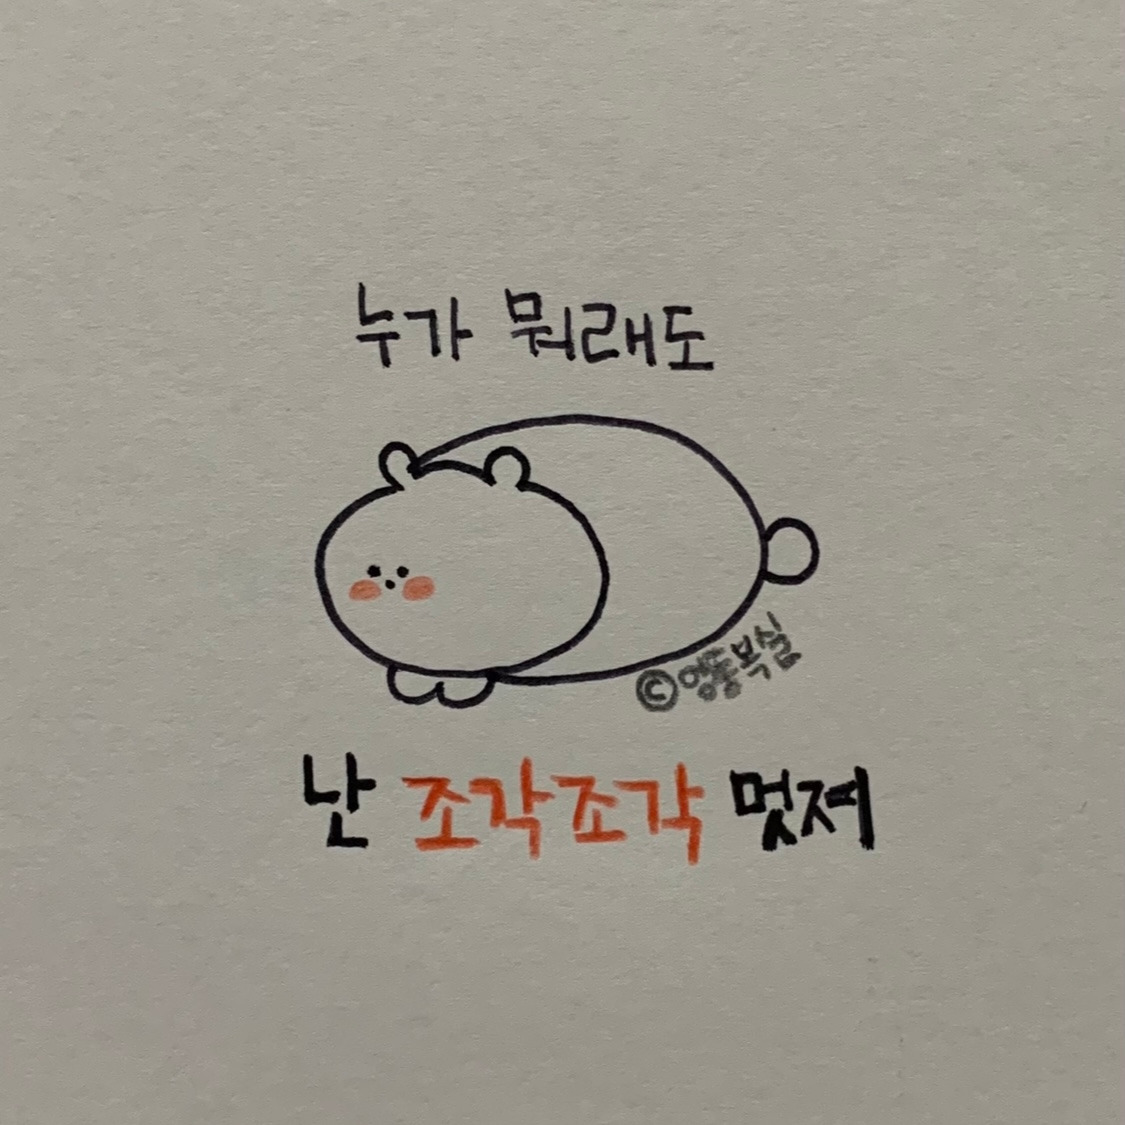 누가 뭐래도
©영동복실
난 조각조각 멋져